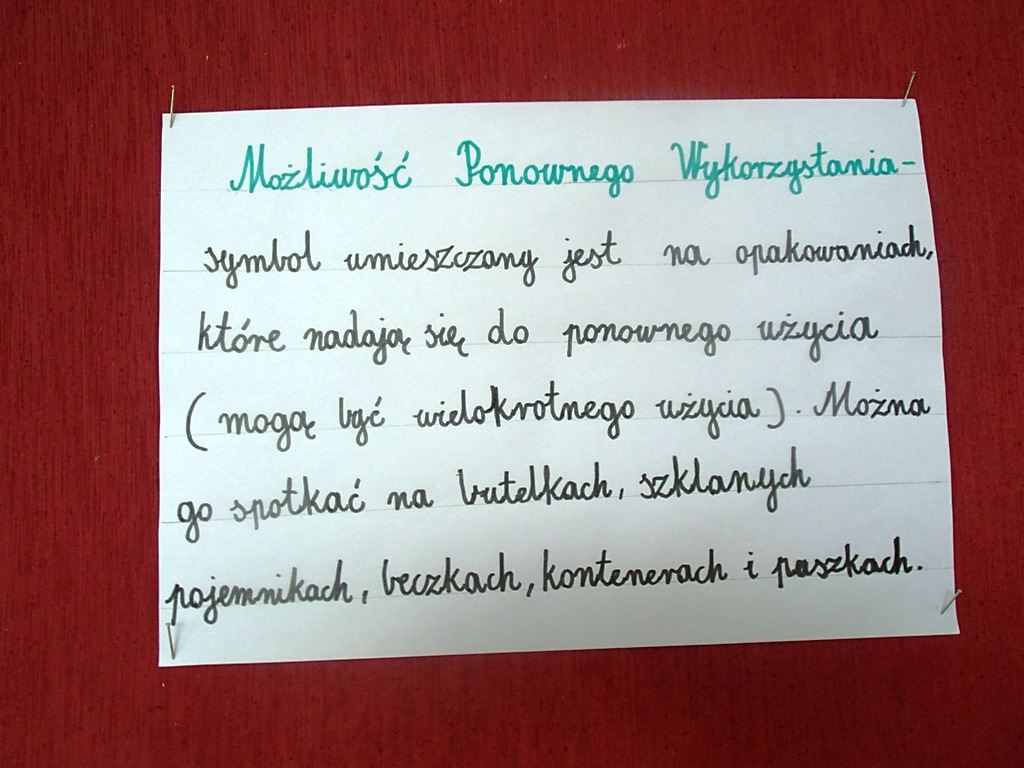 Możliwość Ponownego Wykorzystania-
symbol umieszczany jest na opakowaniach,
które nadają się do ponownego użycia
(mogą być wielokrotnego użycia). Można
go spotkać na butelkach, szklanych
pojemnikach, beczkach, kontenerach i puszkach.